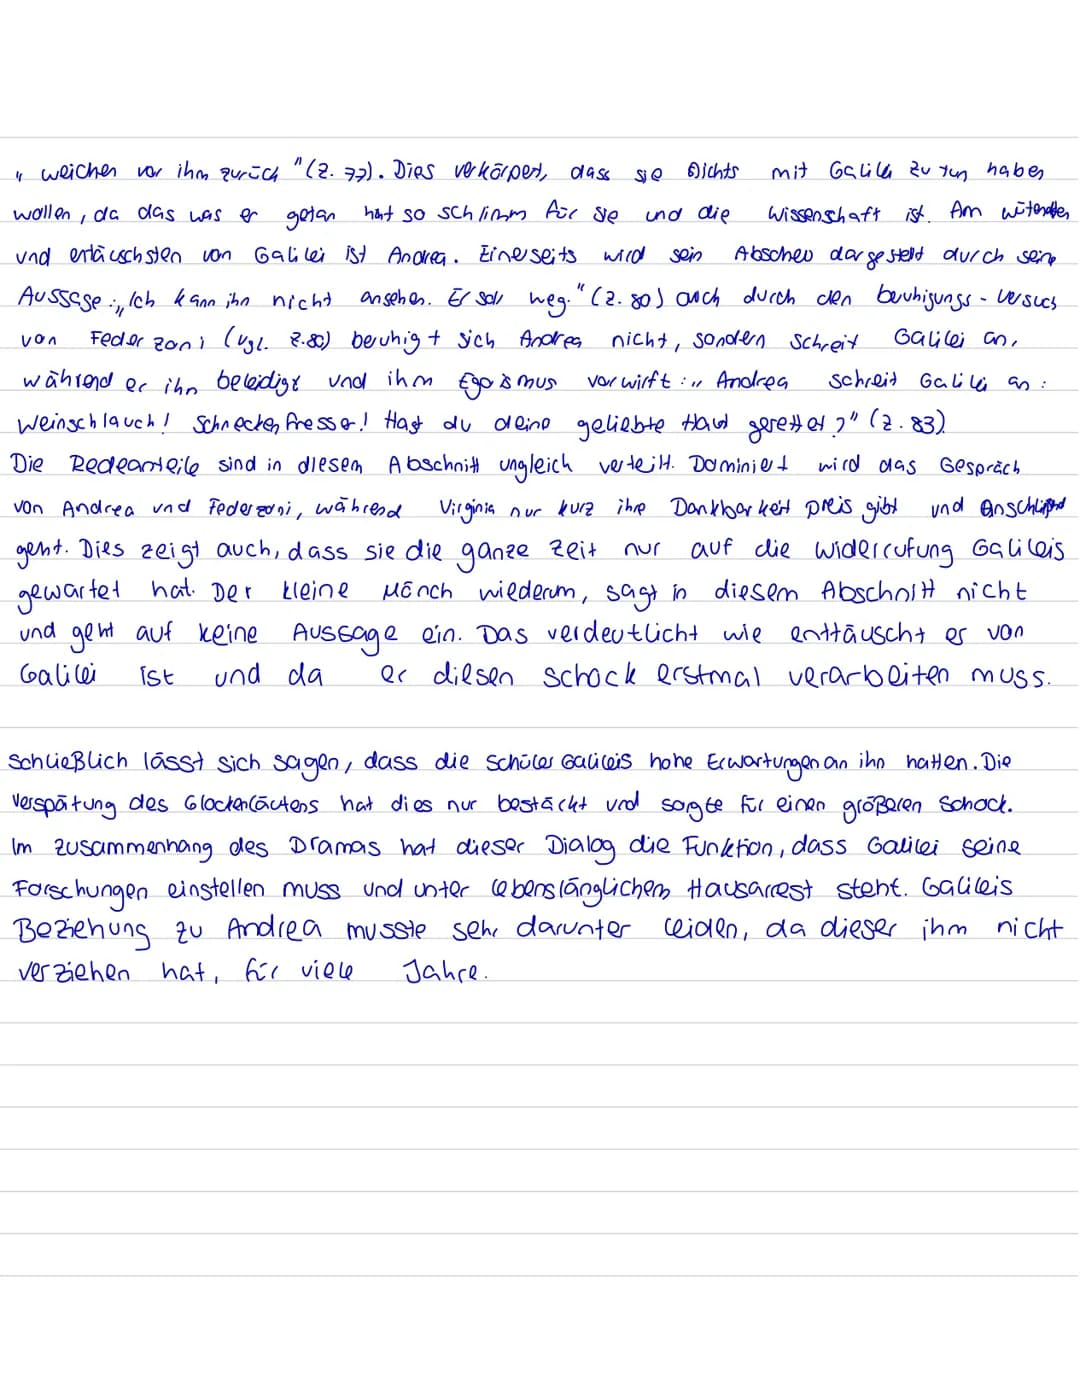 „ weichen vor ihm zurück "(Z. 77). Dies verkörpert, dass sie Nichts mit Galilei zu tun haben
wollen, da das was er getan hat so schlimm für sie und die Wissenschaft ist. Am wütendsten
und entäuschsten von Galilei ist Andrea. Einerseits wird sein Abscheu dargestellt durch seine
Aussage: „Ich kann ihn nicht ansehen. Er soll weg." (Z. 80) auch durch den beuhigungs-Versuch
von Federzoni (vgl. Z.80) beruhigt sich Andrea nicht, sondern schreit Galilei an,
während er ihn beleidigt und ihm Egoismus vorwirft: „ Andrea schreit Galilei an:
Weinschlauch! Schneckenfresser! Hast du deine geliebte Haut gerettet?" (Z. 83)
Die Redeanteile sind in diesem Abschnitt ungleich verteilt. Dominiert wird das Gespräch
von Andrea und Federzoni, während Virginia nur kurz ihre Dankbarkeit preis gibt und Anschließend
geht. Dies zeigt auch, dass sie die ganze Zeit nur auf die Widerrufung Galileis
gewartet hat. Der kleine Mönch wiederum, sagt in diesem Abschnitt nicht
und geht auf keine Aussage ein. Das verdeutlicht wie enttäuscht er von
Galilei ist und da er diesen Schock erstmal verarbeiten muss.
Schließlich lässt sich sagen, dass die Schüler Galileis hohe Erwartungen an ihn hatten. Die
Verspätung des Glockenläutens hat dies nur bestäckt und sorgte für einen größeren Schock.
Im Zusammenhang des Dramas hat dieser Dialog die Funktion, dass Galilei seine
Forschungen einstellen muss und unter lebenslänglichem Hausarrest steht. Galileis
Beziehung zu Andrea musste sehr darunter leiden, da dieser ihm nicht
verziehen hat, für viele Jahre.